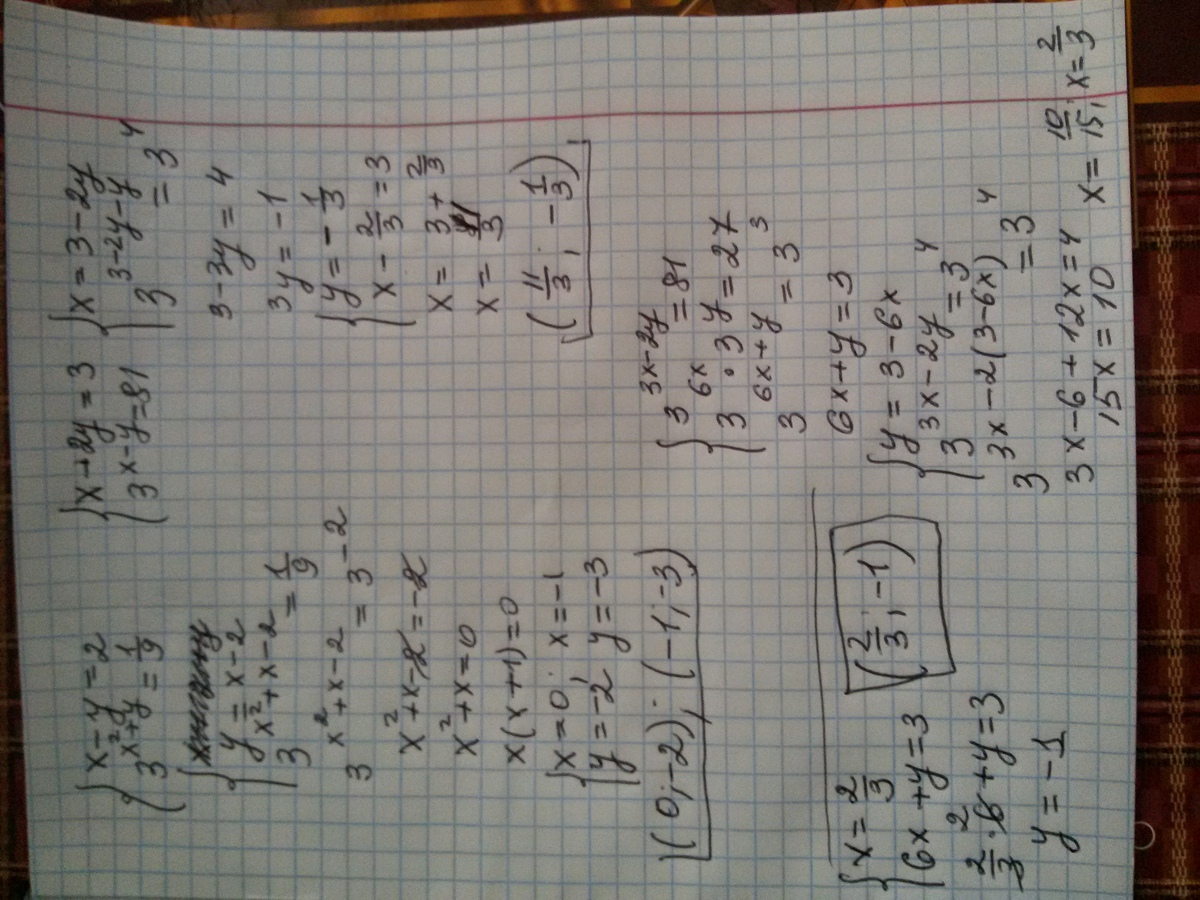 { x - y = 2
{ 3^(x²+y) = 1/9
{ y = x - 2
{ 3^(x²+x-2) = 1/9
3^(x²+x-2) = 3^(-2)
x² + x - 2 = -2
x² + x = 0
x(x+1) = 0
{ x = 0; x = -1
{ y = -2; y = -3
(0; -2); (-1; -3)
{ x + 2y = 3
{ 3^(x-y) = 81
{ x = 3 - 2y
{ 3^(3-2y-y) = 3^4
3 - 3y = 4
3y = -1
{ y = -1/3
{ x - 2/3 = 3
x = 3 + 2/3
x = 11/3
(11/3; -1/3)
{ 3^(3x-2y) = 81
{ 3^(6x) · 3^y = 27
3^(6x+y) = 3^3
6x + y = 3
{ y = 3 - 6x
{ 3^(3x-2y) = 3^4
3^(3x-2(3-6x)) = 3^4
3x - 6 + 12x = 4
15x = 10
x = 10/15; x = 2/3
{ x = 2/3
{ 6x + y = 3
2/3 · 6 2 + y = 3
y = -1
(2/3; -1)